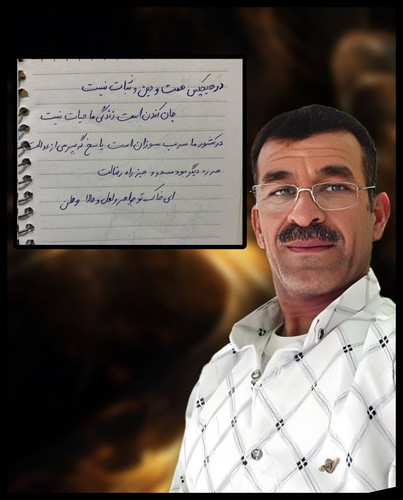 در هیچکس همت و دین و ثبات نیست
جان کندن است زندگی ما حیات نیست
در کشور ما سرب سوزان است پاسخ گر بپرسی از عدالت
دیگر بود مسدود جز راه رذالت
ای خاک تو جواهر و لعل و طلا وطن